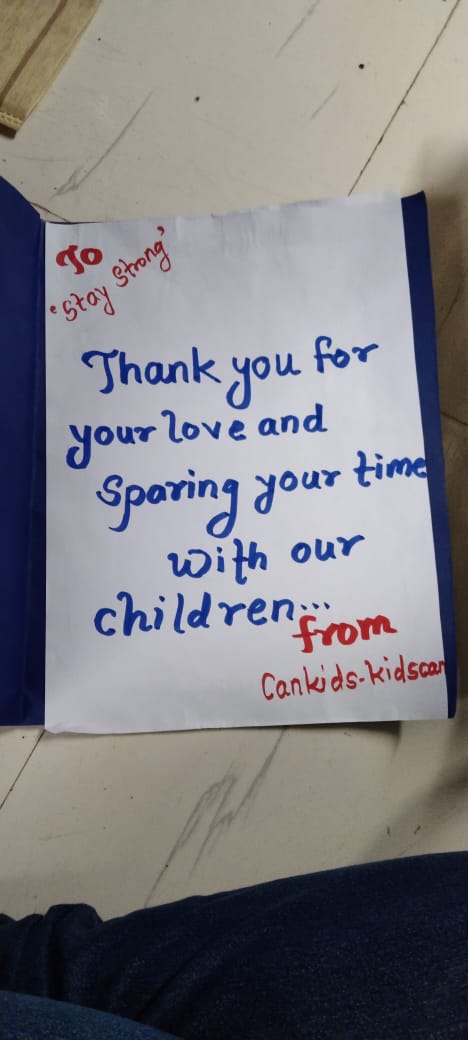 To
'Stay Strong'
Thank you for
your love and
Sparing your time
with our
children...
from
Cankids-kidscan